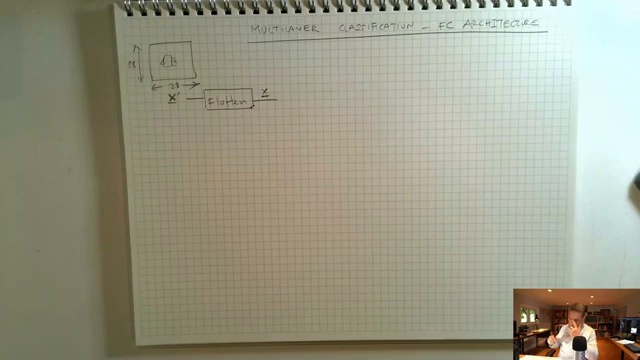 MULTILAYER CLASSIFICATION - FC ARCHITECTURE
28
28
X' Flatten X